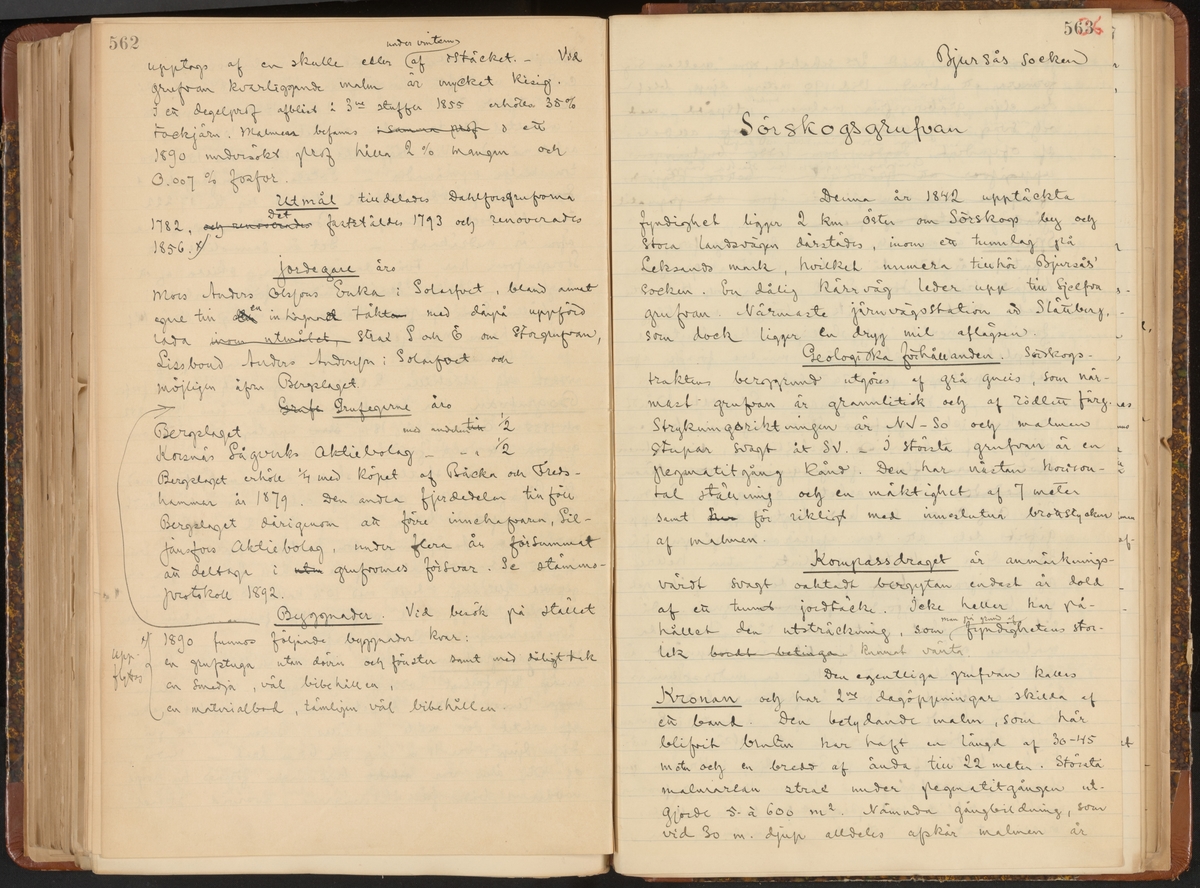 562
under vinterns
upptags af en skulle eller af istäcket. – Vid
grufvan kvarliggande malm är mycket kisig.
I ett degelprof afblist i 3ne stuffer 1855 erhölls 35%
tackjärn. Malmen befans i samma prof o ett
1890 undersökt prof hålla 2% mangan och
0.007 % fosfor.
Utmål tilldelades Dahlforsgrufvorna
det
1782, och renoverades fastställdes 1793 och renoverades
1856.
Jordegare äro
Mors Anders Olssons Enka i Solarfvet, bland annat
egne till en inhägnad täkt med därpå uppförd
lada inom utmålet strax S och Ö om Storgrufvan,
Lissbond Anders Andersson i Solarfvet och
möjligen äfven Bergslaget.
Grufe Grufegarne äro
Bergslaget med andelen 1/2
Korsnäs Sågverks Aktiebolag – – 1/2
Bergslaget erhöll 1/4 med köpet af Bäcka och Freds-
hammar år 1879. Den andra fjerdedelen tillföll
Bergslaget därigenom att förre innehafvaren, Sil-
jansfors Aktiebolag, under flera år försummat
att deltaga i grufvornas försvar. Se stämmo-
protokoll 1892.
Byggnader. Vid besök på stället
1890 funnos följande byggnader kvar:
upp-
flyttas
en grufstuga utan dörrar och fönster samt med dåligt tak
en smedja, väl bibehållen,
en materialbod, tämligen väl bibehållen.
563
Bjursås Socken
Sörskogsgrufvan
Denna år 1842 upptäckta
fyndighet ligger 2 km öster om Sörskogs by och
stora landsvägen därstädes, inom ett tunnlag på
Leksands mark, hvilket numera tillhör Bjursås'
socken. En dålig kärrväg leder upp till sjelfva
grufvan. Närmaste järnvägsstation är Slättberg,
som dock ligger en dryg mil aflägsen.
Geologiska förhållanden. Sörskogs-
traktens berggrund utgöres af grå gneis, som när-
mast grufvan är granulitisk och af rödlett färg.
Strykningsriktningen är NV–SO och malmen
stupar svagt åt SV. – I största grufvan är en
pegmatitgång känd. Den har nästan horison-
tal ställning och en mäktighet af 7 meter
samt för rikligt med inneslutna brottstycken
af malmen.
Kompassdraget är anmärknings-
värdt svagt oaktadt bergytan endast är dold
af ett tunnt jordtäcke. Icke heller har på-
man på grund af
hållet den utsträckning, som fyndighetens stor-
lek bordt betinga kunnat vänta.
Den egentliga grufvan kallas
Kronan och har 2ne dagöppningar skilda af
ett band. Den betydande malm, som här
blifvit bruten har haft en längd af 30–45
meter och en bredd af ända till 22 meter. Största
malmarean strax under pegmatitgången ut-
gjorde 5 à 600 m². Nämnda gångbildning, som
vid 30 m. djup alldeles afskär malmen är